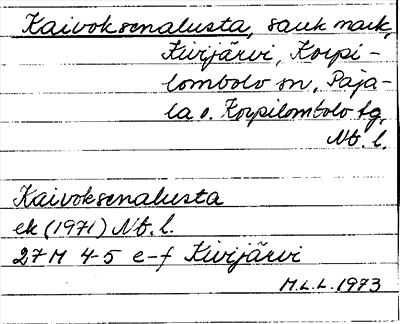 Kaivoksenalusta, sank mark,
Kivijärvi, Korpi-
lombolo sn, Paja-
la o. Korpilombolo tg,
Nb. l.
Kaivoksenalusta
ek (1971) Nb. l.
27M 4-5 e-f Kivijärvi
M.L.L. 1973